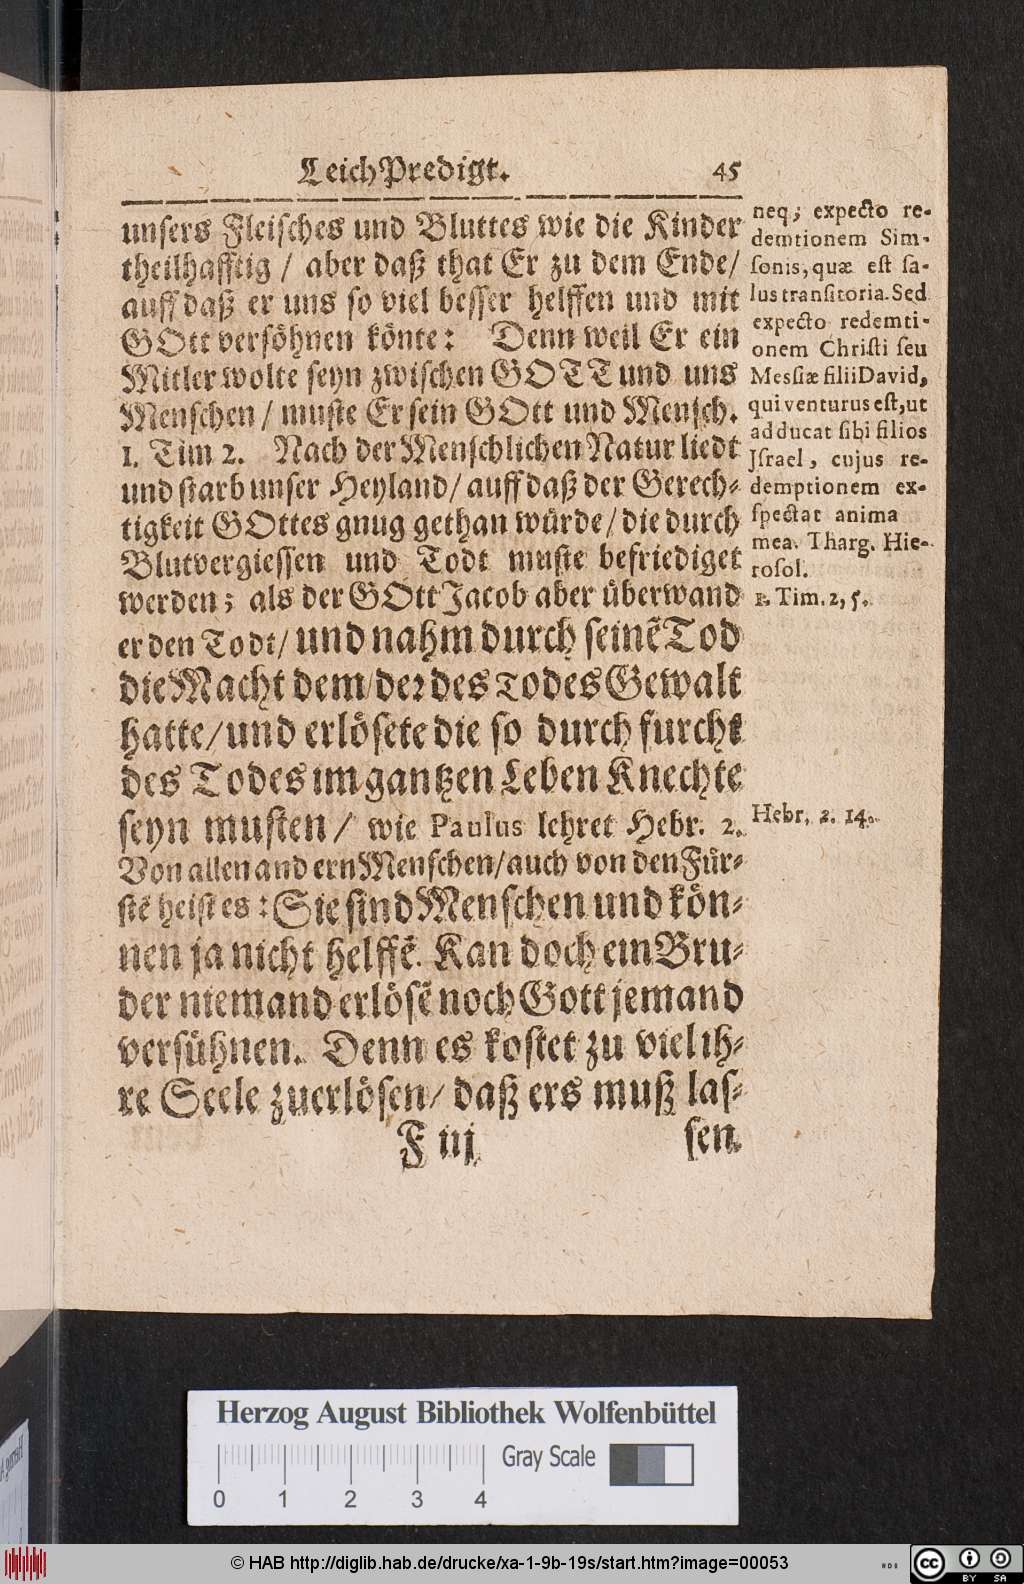 LeichPredigt. 45
unsers Fleisches und Bluttes wie die Kinder
theilhafftig / aber daß that Er zu dem Ende/
auff daß er uns so viel besser helffen und mit
GOtt versöhnen könte: Denn weil Er ein
Mitler wolte seyn zwischen GOTT und uns
Menschen / muste Er sein GOtt und Mensch.
1. Tim 2. Nach der Menschlichen Natur liedt
und starb unser Heyland / auff daß der Gerech-
tigkeit GOttes gnug gethan würde / die durch
Blutvergiessen und Todt muste befriediget
werden; als der GOtt Jacob aber überwand
er den Todt / und nahm durch seinē Tod
die Macht dem / der des Todes Gewalt
hatte / und erlösete die so durch furcht
des Todes im gantzen Leben Knechte
seyn musten / wie Paulus lehret Hebr. 2.
Von allen andern Menschen / auch von den Für-
stē heist es: Sie sind Menschen und kön-
nen ja nicht helffē. Kan doch ein Bru-
der niemand erlösē noch Gott jemand
versühnen. Denn es kostet zu viel ih-
re Seele zuerlösen / daß ers muß las-
F iij sen.
neq; expecto re-
demtionem Sim-
sonis, quæ est sa-
lus transitoria. Sed
expecto redemti-
onem Christi seu
Messiæ filii David,
qui venturus est, ut
adducat sibi filios
Jsrael, cujus re-
demptionem ex-
spectat anima
mea. Tharg. Hie-
rosol.
1. Tim. 2, 5.
Hebr, 2. 14.
Herzog August Bibliothek Wolfenbüttel
Gray Scale
0 1 2 3 4
© HAB http://diglib.hab.de/drucke/xa-1-9b-19s/start.htm?image=00053
cc BY SA